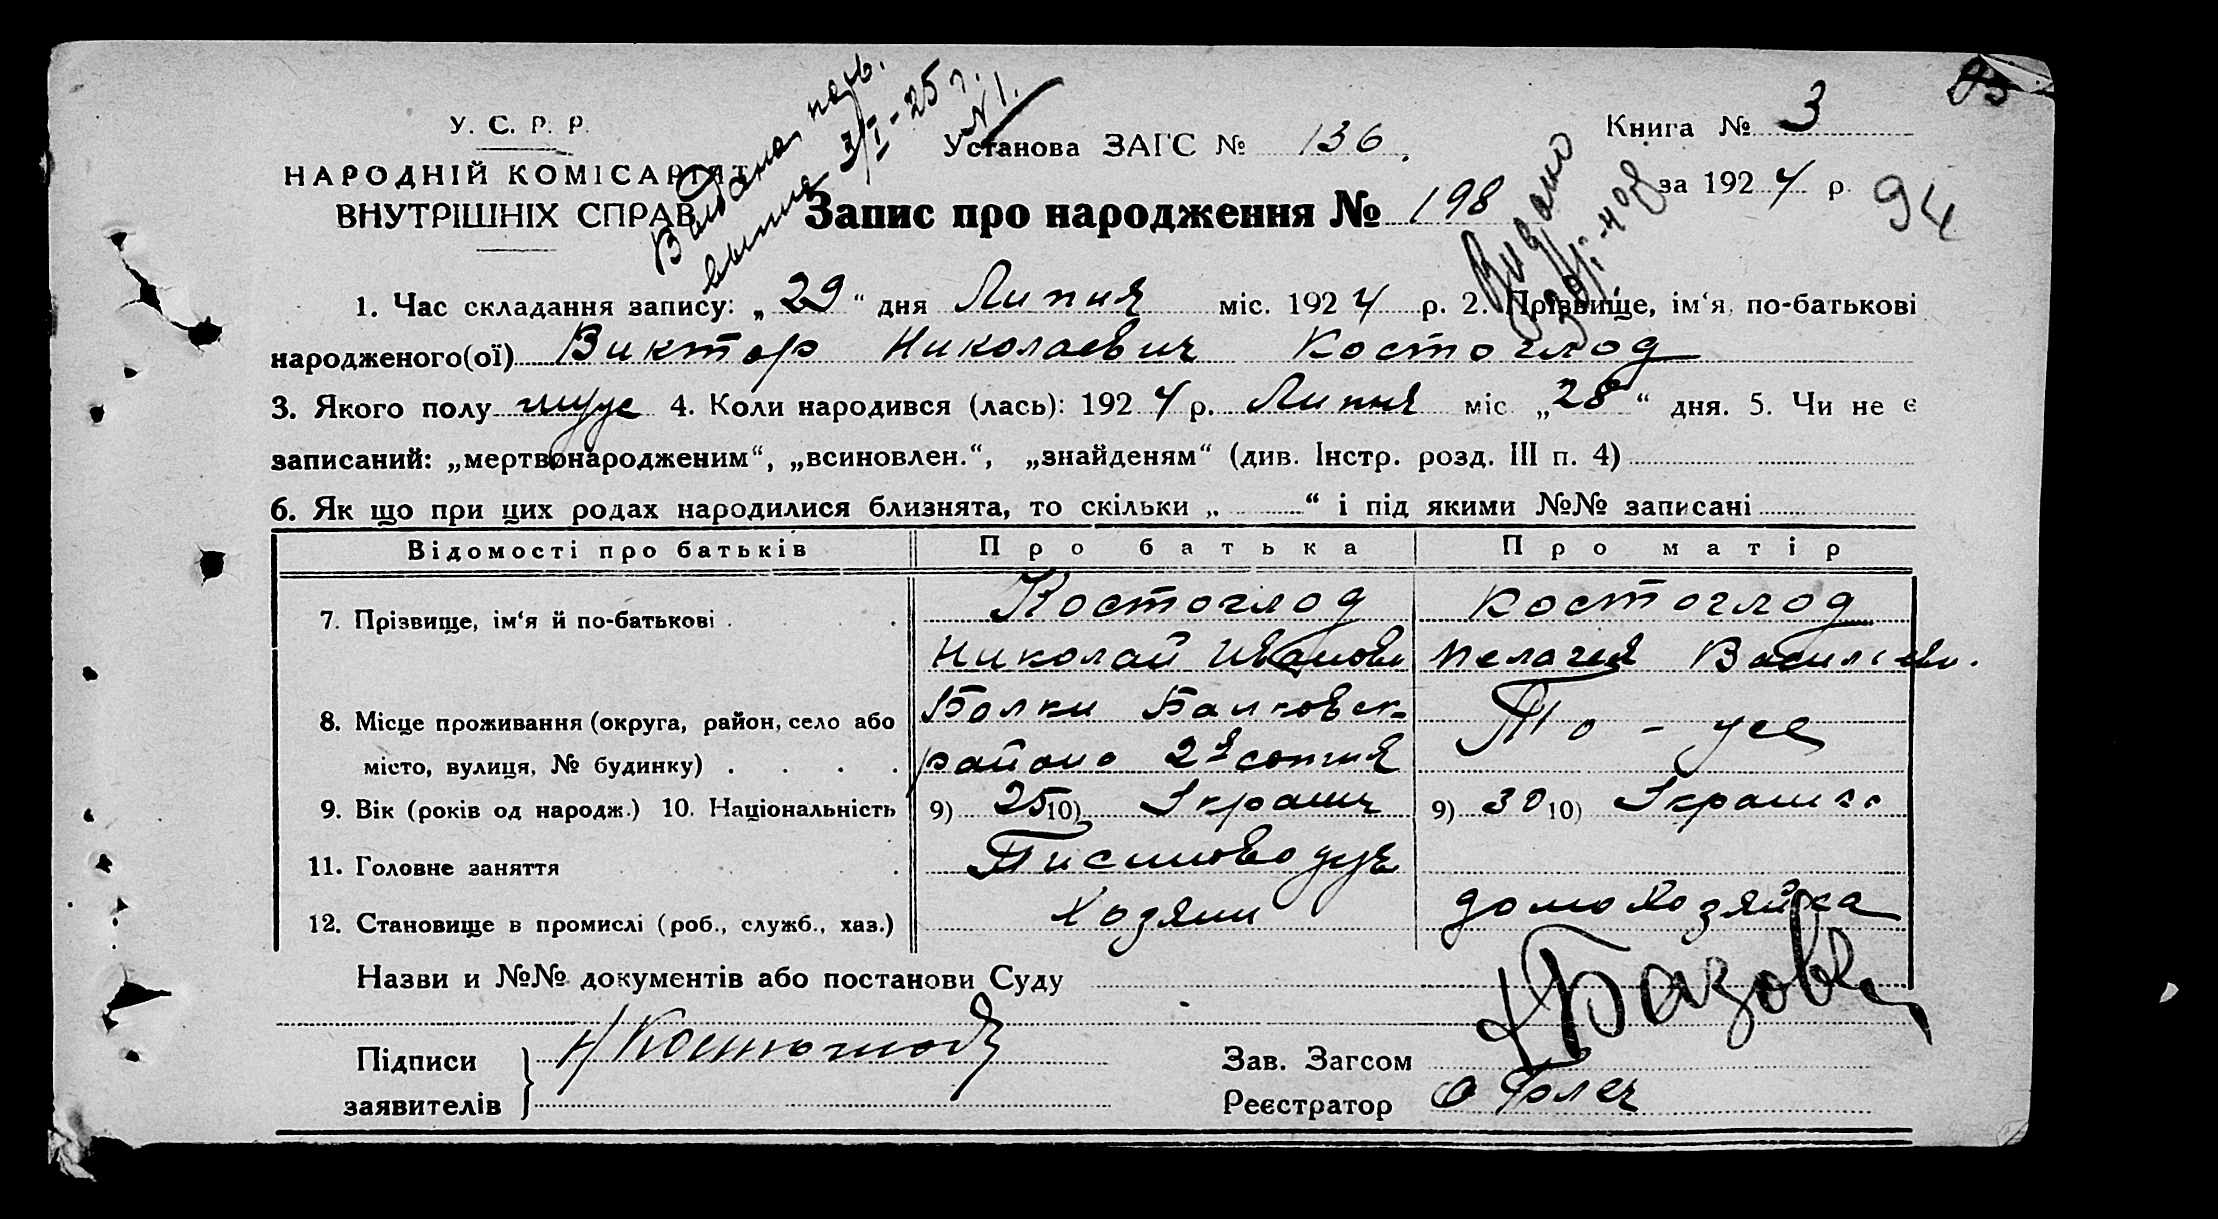 У. С. Р. Р.
НАРОДНІЙ КОМІСАРІЯТ
ВНУТРІШНІХ СПРАВ
Выдана повт.
выпись 3/I-25 г.
№ 1.
Установа ЗАГС № 136.
Книга № 3
за 1924 р.
94
Видано
Запис про народження № 198
1. Час складання запису: „29“ дня Липня міс. 1924 р. 2. Прізвище, ім‘я, по-батькові
народженого(ої) Виктор Николаевич Костоглод
3. Якого полу муж 4. Коли народився (лась): 1924 р. Липня міс. „28“ дня. 5. Чи не є
записаний: „мертвонародженим“, „всиновлен.“, „знайденям“ (див. Інстр. розд. III п. 4)
6. Як що при цих родах народилися близнята, то скільки „ “ і під якими №№ записані
Відомості про батьків Про батька Про матір
7. Прізвище, ім‘я й по-батькові Костоглод Костоглод
Николай Иванови Пелагея Васильевн.
8. Місце проживання (округа, район, село або Балки Балковск
місто, вулиця, № будинку) района 2я сотня То-же
9. Вік (років од народж.) 10. Національність 9) 25 10) Украинц 9) 30 10) Украинка
11. Головне заняття Письмоводит
12. Становище в промислі (роб., служб., хаз.) Хозяин домохозяйка
Назви и №№ документів або постанови Суду
Підписи Н Костоглод Зав. Загсом
заявителів Реєстратор